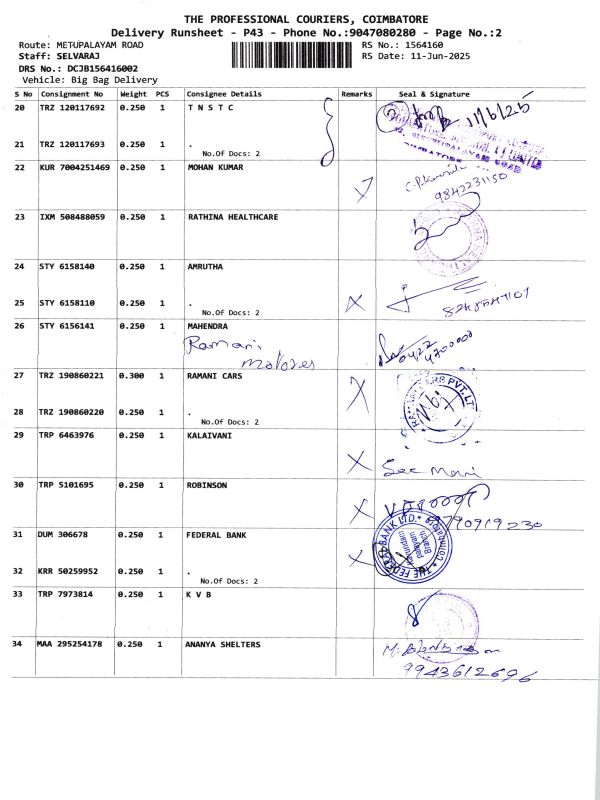 THE PROFESSIONAL COURIERS, COIMBATORE
Delivery Runsheet - P43 - Phone No.:9047080280 - Page No.:2
Route: METUPALAYAM ROAD RS No.: 1564160
Staff: SELVARAJ RS Date: 11-Jun-2025
DRS No.: DCJB156416002
Vehicle: Big Bag Delivery
S No Consignment No Weight PCS Consignee Details Remarks Seal & Signature
20 TRZ 120117692 0.250 1 T N S T C 11/6/25
21 TRZ 120117693 0.250 1 .
No.Of Docs: 2
22 KUR 7004251469 0.250 1 MOHAN KUMAR
9842231150
23 IXM 508488059 0.250 1 RATHINA HEALTHCARE
24 STY 6158140 0.250 1 AMRUTHA
25 STY 6158110 0.250 1 .
No.Of Docs: 2
26 STY 6156141 0.250 1 MAHENDRA
Ramani
motores
0422
4700000
27 TRZ 190860221 0.300 1 RAMANI CARS
28 TRZ 190860220 0.250 1 .
No.Of Docs: 2
29 TRP 6463976 0.250 1 KALAIVANI
30 TRP 5101695 0.250 1 ROBINSON
9790919230
31 DUM 306678 0.250 1 FEDERAL BANK
THE FEDERAL BANK LTD. * Coimbatore *
Kavundam
palayam
Branch
32 KRR 50259952 0.250 1 .
No.Of Docs: 2
33 TRP 7973814 0.250 1 K V B
34 MAA 295254178 0.250 1 ANANYA SHELTERS
9943612696